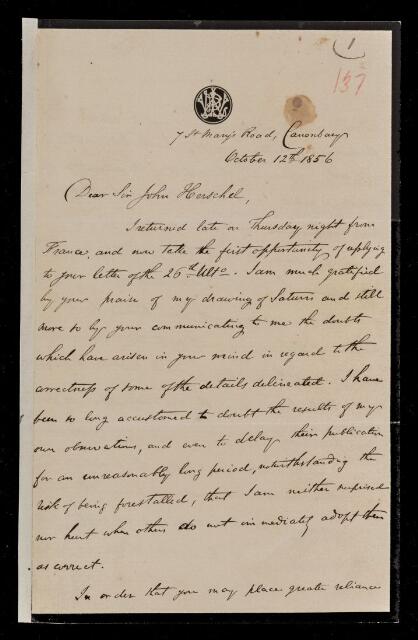 1
137
7 St Mary's Road, Canonbury
October 12th 1856
Dear Sir John Herschel,
I returned late on Thursday night from
France, and now take the first opportunity of replying
to your letter of the 26th Ulto. I am much gratified
by your praise of my drawing of Saturn and still
more so by your communicating to me the doubts
which have arisen in your mind in regard to the
correctness of some of the details delineated. I have
been so long accustomed to doubt the results of my
own observations, and even to delay their publication
for an unreasonably long period, notwithstanding the
risk of being forestalled, that I am neither surprised
nor hurt when others do not immediately adopt them
as correct.
In order that you may place greater reliance